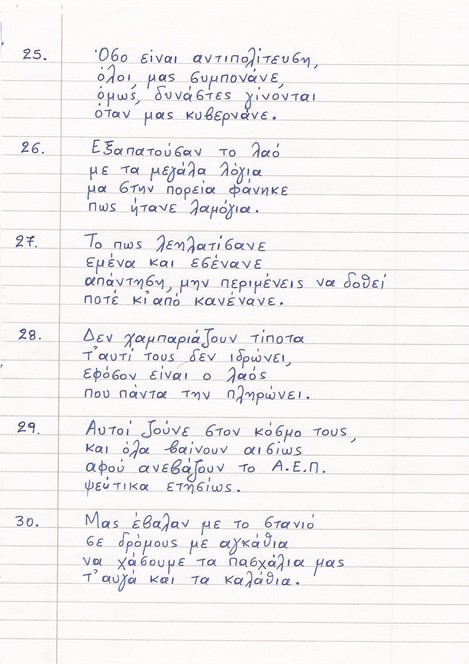 25. Όσο είναι αντιπολίτευση,
όλοι, μας συμπονάνε,
όμως, δυνάστες γίνονται
όταν μας κυβερνάνε.
26. Εξαπατούσαν το λαό
με τα μεγάλα λόγια
μα στην πορεία φάνηκε
πως ήτανε λαμόγια.
27. Το πως λεηλατίσανε
εμένα και εσένανε
απάντηση, μην περιμένεις να δοθεί
ποτέ κι' από κανένανε.
28. Δεν χαμπαριάζουν τίποτα
τ' αυτί τους δεν ιδρώνει,
εφόσον είναι ο λαός
που πάντα την πληρώνει.
29. Αυτοί ζούνε στον κόσμο τους,
και όλα βαίνουν αισίως
αφού ανεβάζουν το Α.Ε.Π.
ψεύτικα ετησίως.
30. Μας έβαλαν με το στανιό
σε δρόμους με αγκάθια
να χάσουμε τα πασχάλια μας
τ' αυγά και τα καλάθια.